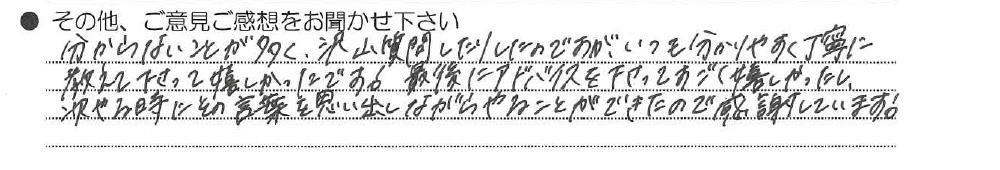 ● その他、ご意見ご感想をお聞かせ下さい
分からないことが多く、沢山質問したりしたのですが、いつも分かりやすく丁寧に
教えて下さって嬉しかったです。最後にアドバイスを下さってすごく嬉しかったし、
次やる時にその言葉を思い出しながらやることができたので感謝しています。